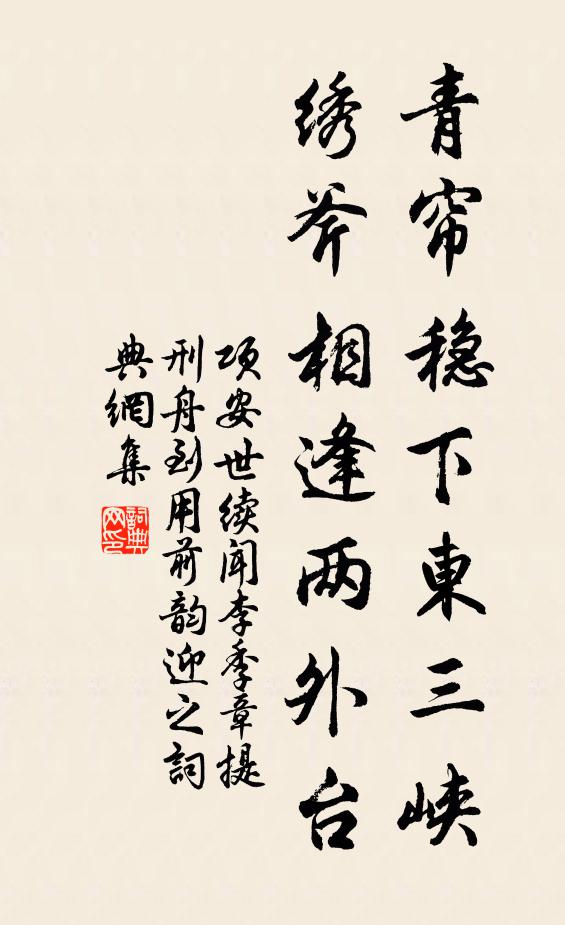 青帘稳下東三峡
绣斧相逢两外台
项安世续闻李季章提
刑舟到用前韵迎之詞
典網集
詞典网印